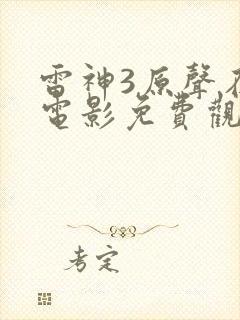 雷神3原聲
電影免費觀
考定